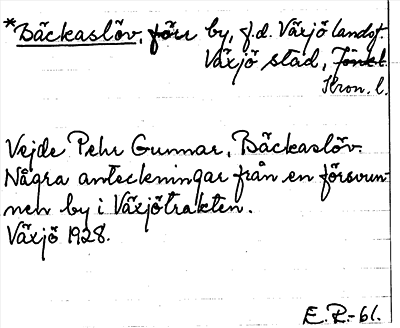 *Bäckaslöv, förr by, f.d. Växjö landsf.
Växjö stad, Jönk.l.
Kron. l.
Vejde Pehr Gunnar, Bäckaslöv.
Några anteckningar från en försvun-
nen by i Växjötrakten.
Växjö 1928.
E.P.-61.